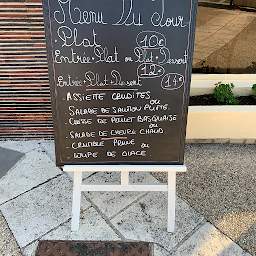 Menu Du Jour
Plat 10€
Entrée + Plat ou Plat + Dessert
12€
Entrée + Plat + Dessert 14€
- ASSIETTE CRUDITÉS
ou
SALADE DE SAUMON FUMÉ.
- CUISSE DE POULET BASQUAISE
ou
- SALADE DE CHEVRE CHAUD.
- CRUMBLE PRUNE
ou
- COUPE DE GLACE.